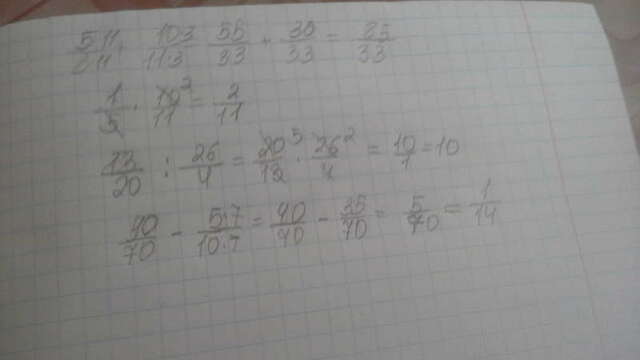 5·11/3·11 · 10·3/11·3 55/33 + 30/33 = 85/33
1/5 · 10²/11 = 2/11
13/20 : 26/4 = 20⁵/13 · 26²/4 = 10/1 = 10
40/70 - 5·7/10·7 = 40/70 - 35/70 = 5/70 = 1/14